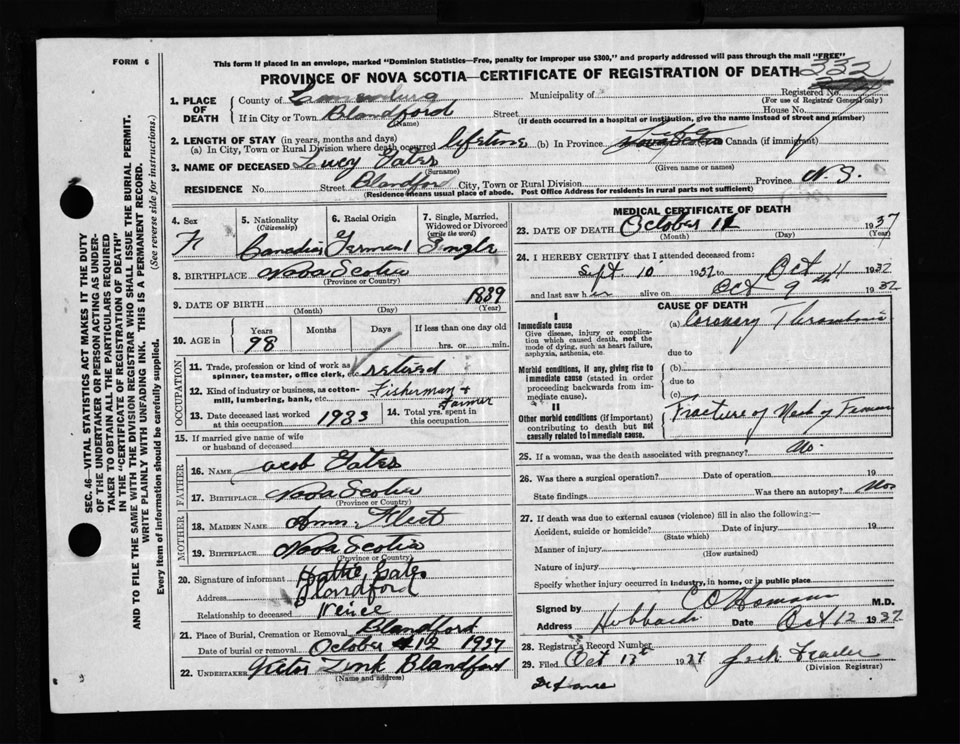 FORM 6
This form if placed in an envelope, marked "Dominion Statistics—Free, penalty for improper use $300," and properly addressed will pass through the mail "FREE"
PROVINCE OF NOVA SCOTIA—CERTIFICATE OF REGISTRATION OF DEATH
332
1. PLACE OF DEATH
County of Lunenburg Municipality of Registered No.
(For use of Registrar General only)
If in City or Town Blandford Street House No.
(Name) (If death occurred in a hospital or institution, give the name instead of street and number)
2. LENGTH OF STAY (in years, months and days)
(a) In City, Town or Rural Division where death occurred lifetime (b) In Province Life Nova Scotia Canada (if immigrant)
3. NAME OF DECEASED Lucy Gates
(Surname) (Given name or names)
RESIDENCE No. Street Blandford City, Town or Rural Division Province N. S.
(Residence means usual place of abode. Post Office Address for residents in rural parts not sufficient)
4. Sex 5. Nationality 6. Racial Origin 7. Single, Married, Widowed or Divorced
(Citizenship) (write the word)
F Canadian German Single
8. BIRTHPLACE Nova Scotia
(Province or Country)
9. DATE OF BIRTH 1839
(Month) (Day) (Year)
10. AGE IN Years Months Days If less than one day old
98 hrs. or min.
OCCUPATION
11. Trade, profession or kind of work as spinner, teamster, office clerk, etc. retired
12. Kind of industry or business, as cotton-mill, lumbering, bank, etc. Fisherman + Farmer
13. Date deceased last worked at this occupation 1933 14. Total yrs. spent in this occupation
15. If married give name of wife or husband of deceased
FATHER
16. NAME Jacob Gates
17. BIRTHPLACE Nova Scotia
(Province or Country)
MOTHER
18. MAIDEN NAME Ann Fleet
19. BIRTHPLACE Nova Scotia
(Province or Country)
20. Signature of informant Hattie Gates
Address Blandford
Relationship to deceased neice
21. Place of Burial, Cremation or Removal Blandford
Date of burial or removal October 12 1937
22. UNDERTAKER Victor Zink Blandford
(Name and address)
MEDICAL CERTIFICATE OF DEATH
23. DATE OF DEATH October 1937
(Month) (Day) (Year)
24. I HEREBY CERTIFY that I attended deceased from:
Sept 10 1937 to Oct 1937
and last saw her alive on Oct 9th 1937
CAUSE OF DEATH
I
Immediate cause
Give disease, injury or complication which caused death, not the mode of dying, such as heart failure, asphyxia, asthenia, etc.
(a) Coronary Thrombosis
due to
Morbid conditions, if any, giving rise to immediate cause (stated in order proceeding backwards from immediate cause).
(b)
due to
(c)
II
Other morbid conditions (if important) contributing to death but not causally related to immediate cause.
Fracture of Neck of Femur
25. If a woman, was the death associated with pregnancy? No
26. Was there a surgical operation? Date of operation 19
State findings Was there an autopsy? No
27. If death was due to external causes (violence) fill in also the following:—
Accident, suicide or homicide? Date of injury 19
(State which)
Manner of injury
(How sustained)
Nature of injury
Specify whether injury occurred in industry, in home, or in public place
Signed by M.D.
Address Hubbards Date Oct 12 1937
28. Registrar's Record Number
29. Filed Oct 13th 1937
(Division Registrar)
SEC. 46—VITAL STATISTICS ACT MAKES IT THE DUTY
OF THE UNDERTAKER OR PERSON ACTING AS UNDER-
TAKER TO OBTAIN ALL THE PARTICULARS REQUIRED
IN THE "CERTIFICATE OF REGISTRATION OF DEATH"
AND TO FILE THE SAME WITH THE DIVISION REGISTRAR WHO SHALL ISSUE THE BURIAL PERMIT.
WRITE PLAINLY WITH UNFADING INK. THIS IS A PERMANENT RECORD.
Every item of information should be carefully supplied. (See reverse side for instructions.)